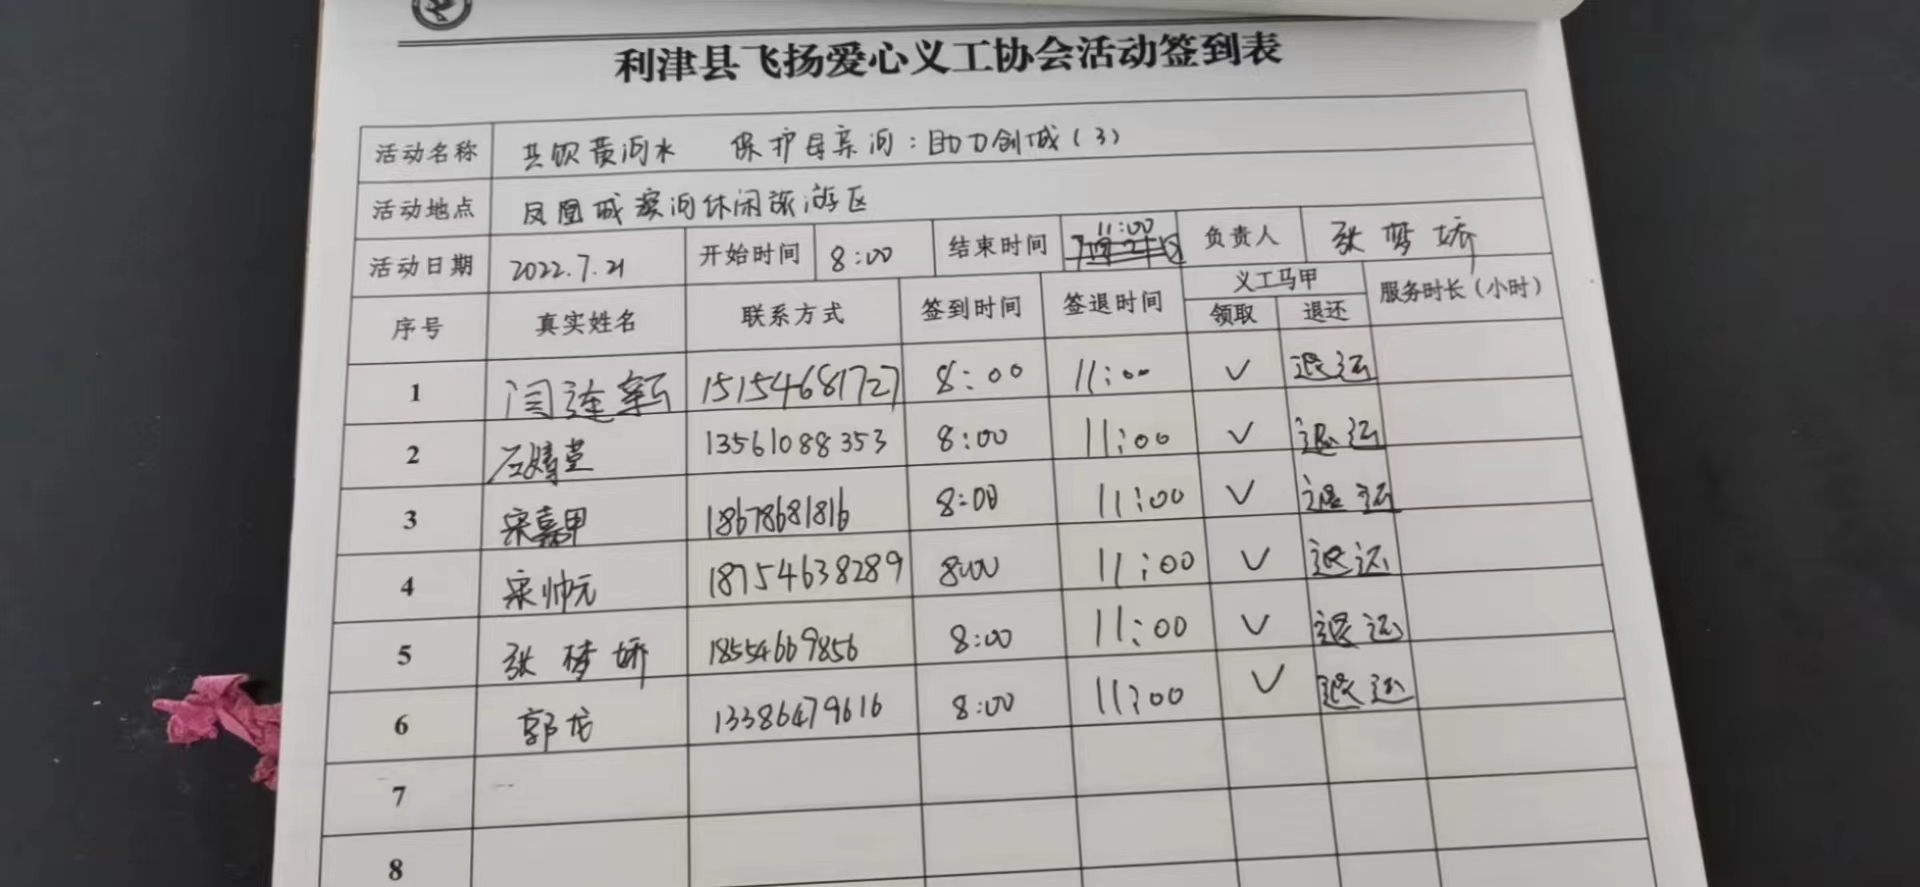 利津县飞扬爱心义工协会活动签到表
活动名称 共饮黄河水 保护母亲河：助力创城（3）
活动地点 凤凰城滨河休闲旅游区
活动日期 2022.7.21 开始时间 8:00 结束时间 11:00 负责人 张梦娇
序号 真实姓名 联系方式 签到时间 签退时间 义工马甲 服务时长（小时）
领取 退还
1 闫连新 15154681727 8:00 11:00 √ 退还
2 13561088353 8:00 11:00 √ 退还
3 宋嘉甲 18678681816 8:00 11:00 √ 退还
4 宋帅元 18754638289 8:00 11:00 √ 退还
5 张梦娇 18554669856 8:00 11:00 √ 退还
6 郭龙 13386479616 8:00 11:00 √ 退还
7
8